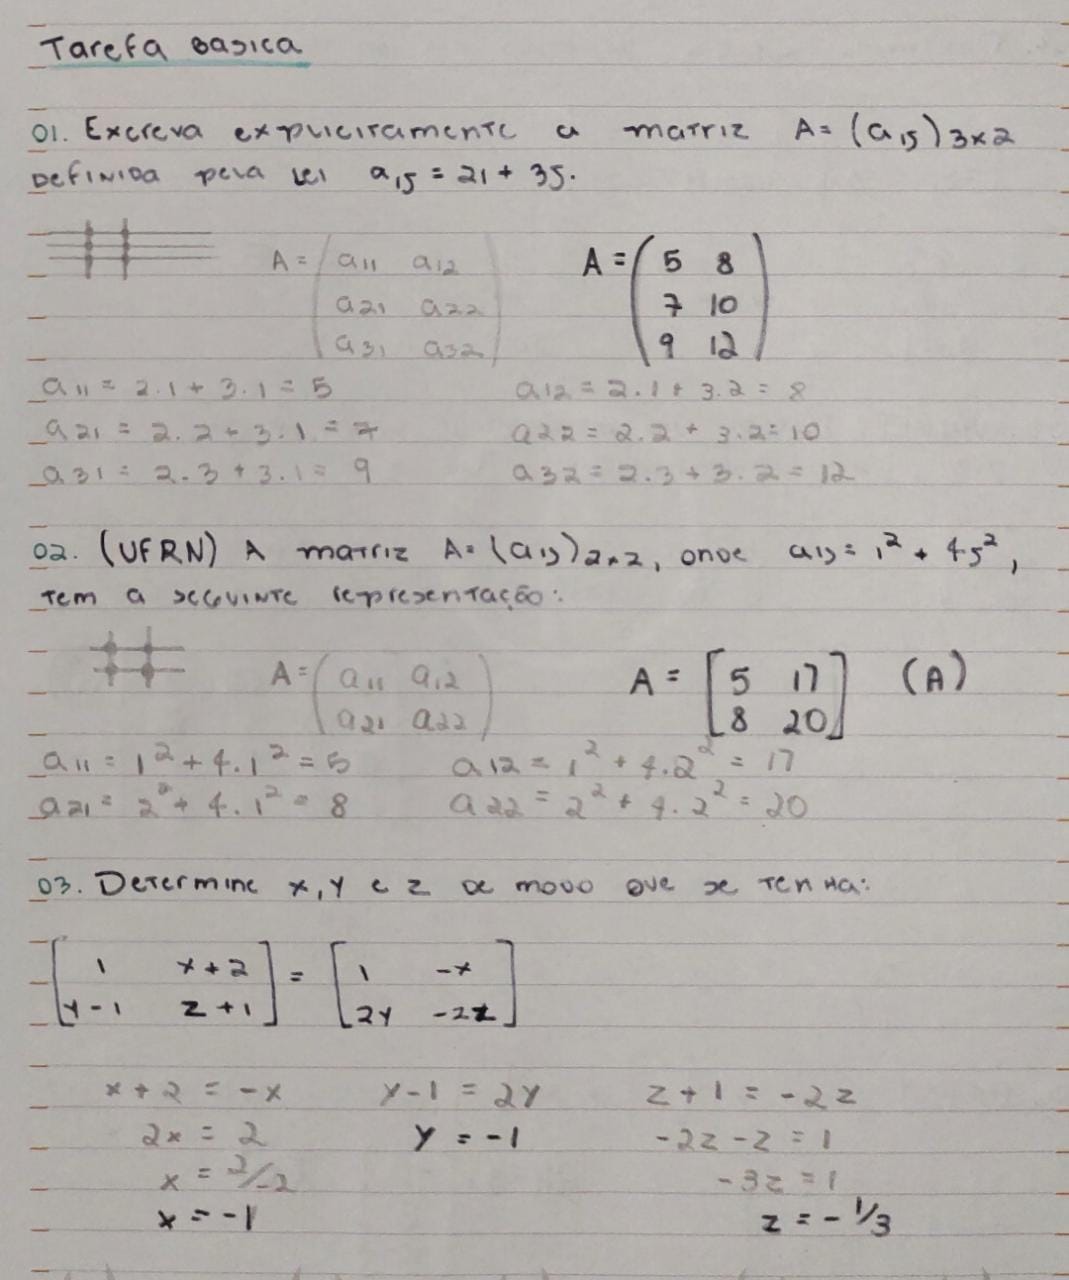 Tarefa Basica
01. Excreva explicitamente a matriz A = (aij)3x2
Definida pela lei aij = 2i + 3j.
A = (a11 a12 A = (5 8
a21 a22 7 10
a31 a32) 9 12)
a11 = 2.1 + 3.1 = 5 a12 = 2.1 + 3.2 = 8
a21 = 2.2 + 3.1 = 7 a22 = 2.2 + 3.2 = 10
a31 = 2.3 + 3.1 = 9 a32 = 2.3 + 3.2 = 12
02. (UFRN) A matriz A = (aij)2x2, onde aij = i² + 4j²,
tem a seguinte representação:
A = (a11 a12 A = [5 17 (A)
a21 a22) 8 20]
a11 = 1² + 4.1² = 5 a12 = 1² + 4.2² = 17
a21 = 2² + 4.1² = 8 a22 = 2² + 4.2² = 20
03. Determine x, y e z de modo que se tenha:
[1 x+2 ] = [1 -x
y-1 z+1] [2y -2z]
x + 2 = -x y-1 = 2y z + 1 = -2z
2x = 2 y = -1 -2z - z = 1
x = 2/-2 -3z = 1
x = -1 z = -1/3